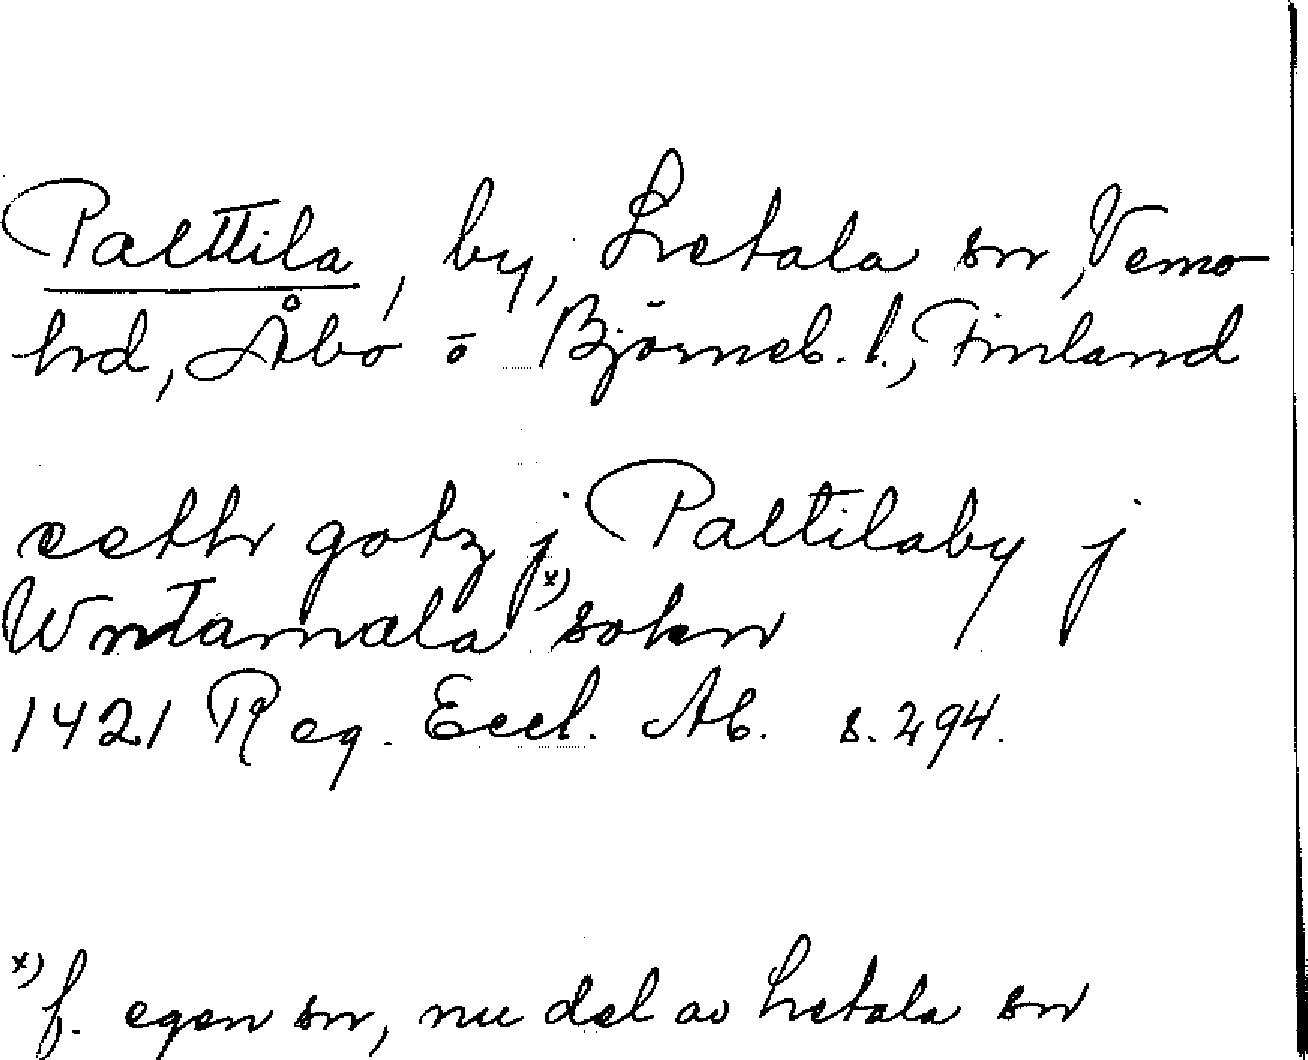 Palttila, by, Letala sn, Vemo
hd, Åbo o Björneb. l., Finland
eetth gotz j Paltilaby j
Wntamala x) sokn
1421 Reg. Eccl. Ab. s. 294.
x) f. egen sn, nu del av Letala sn